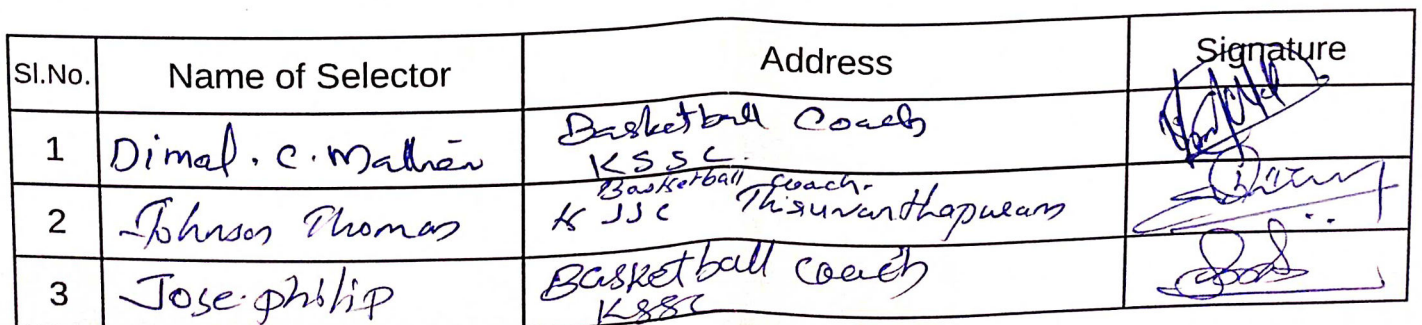 Sl.No. Name of Selector Address Signature
1 Dimal. C. Mathew Basketball Coach
KSSC.
Basketball coach.
2 Johnson Thomas KSSC Thiruvanthapuram
3 Jose philip Basketball coach
KSSC